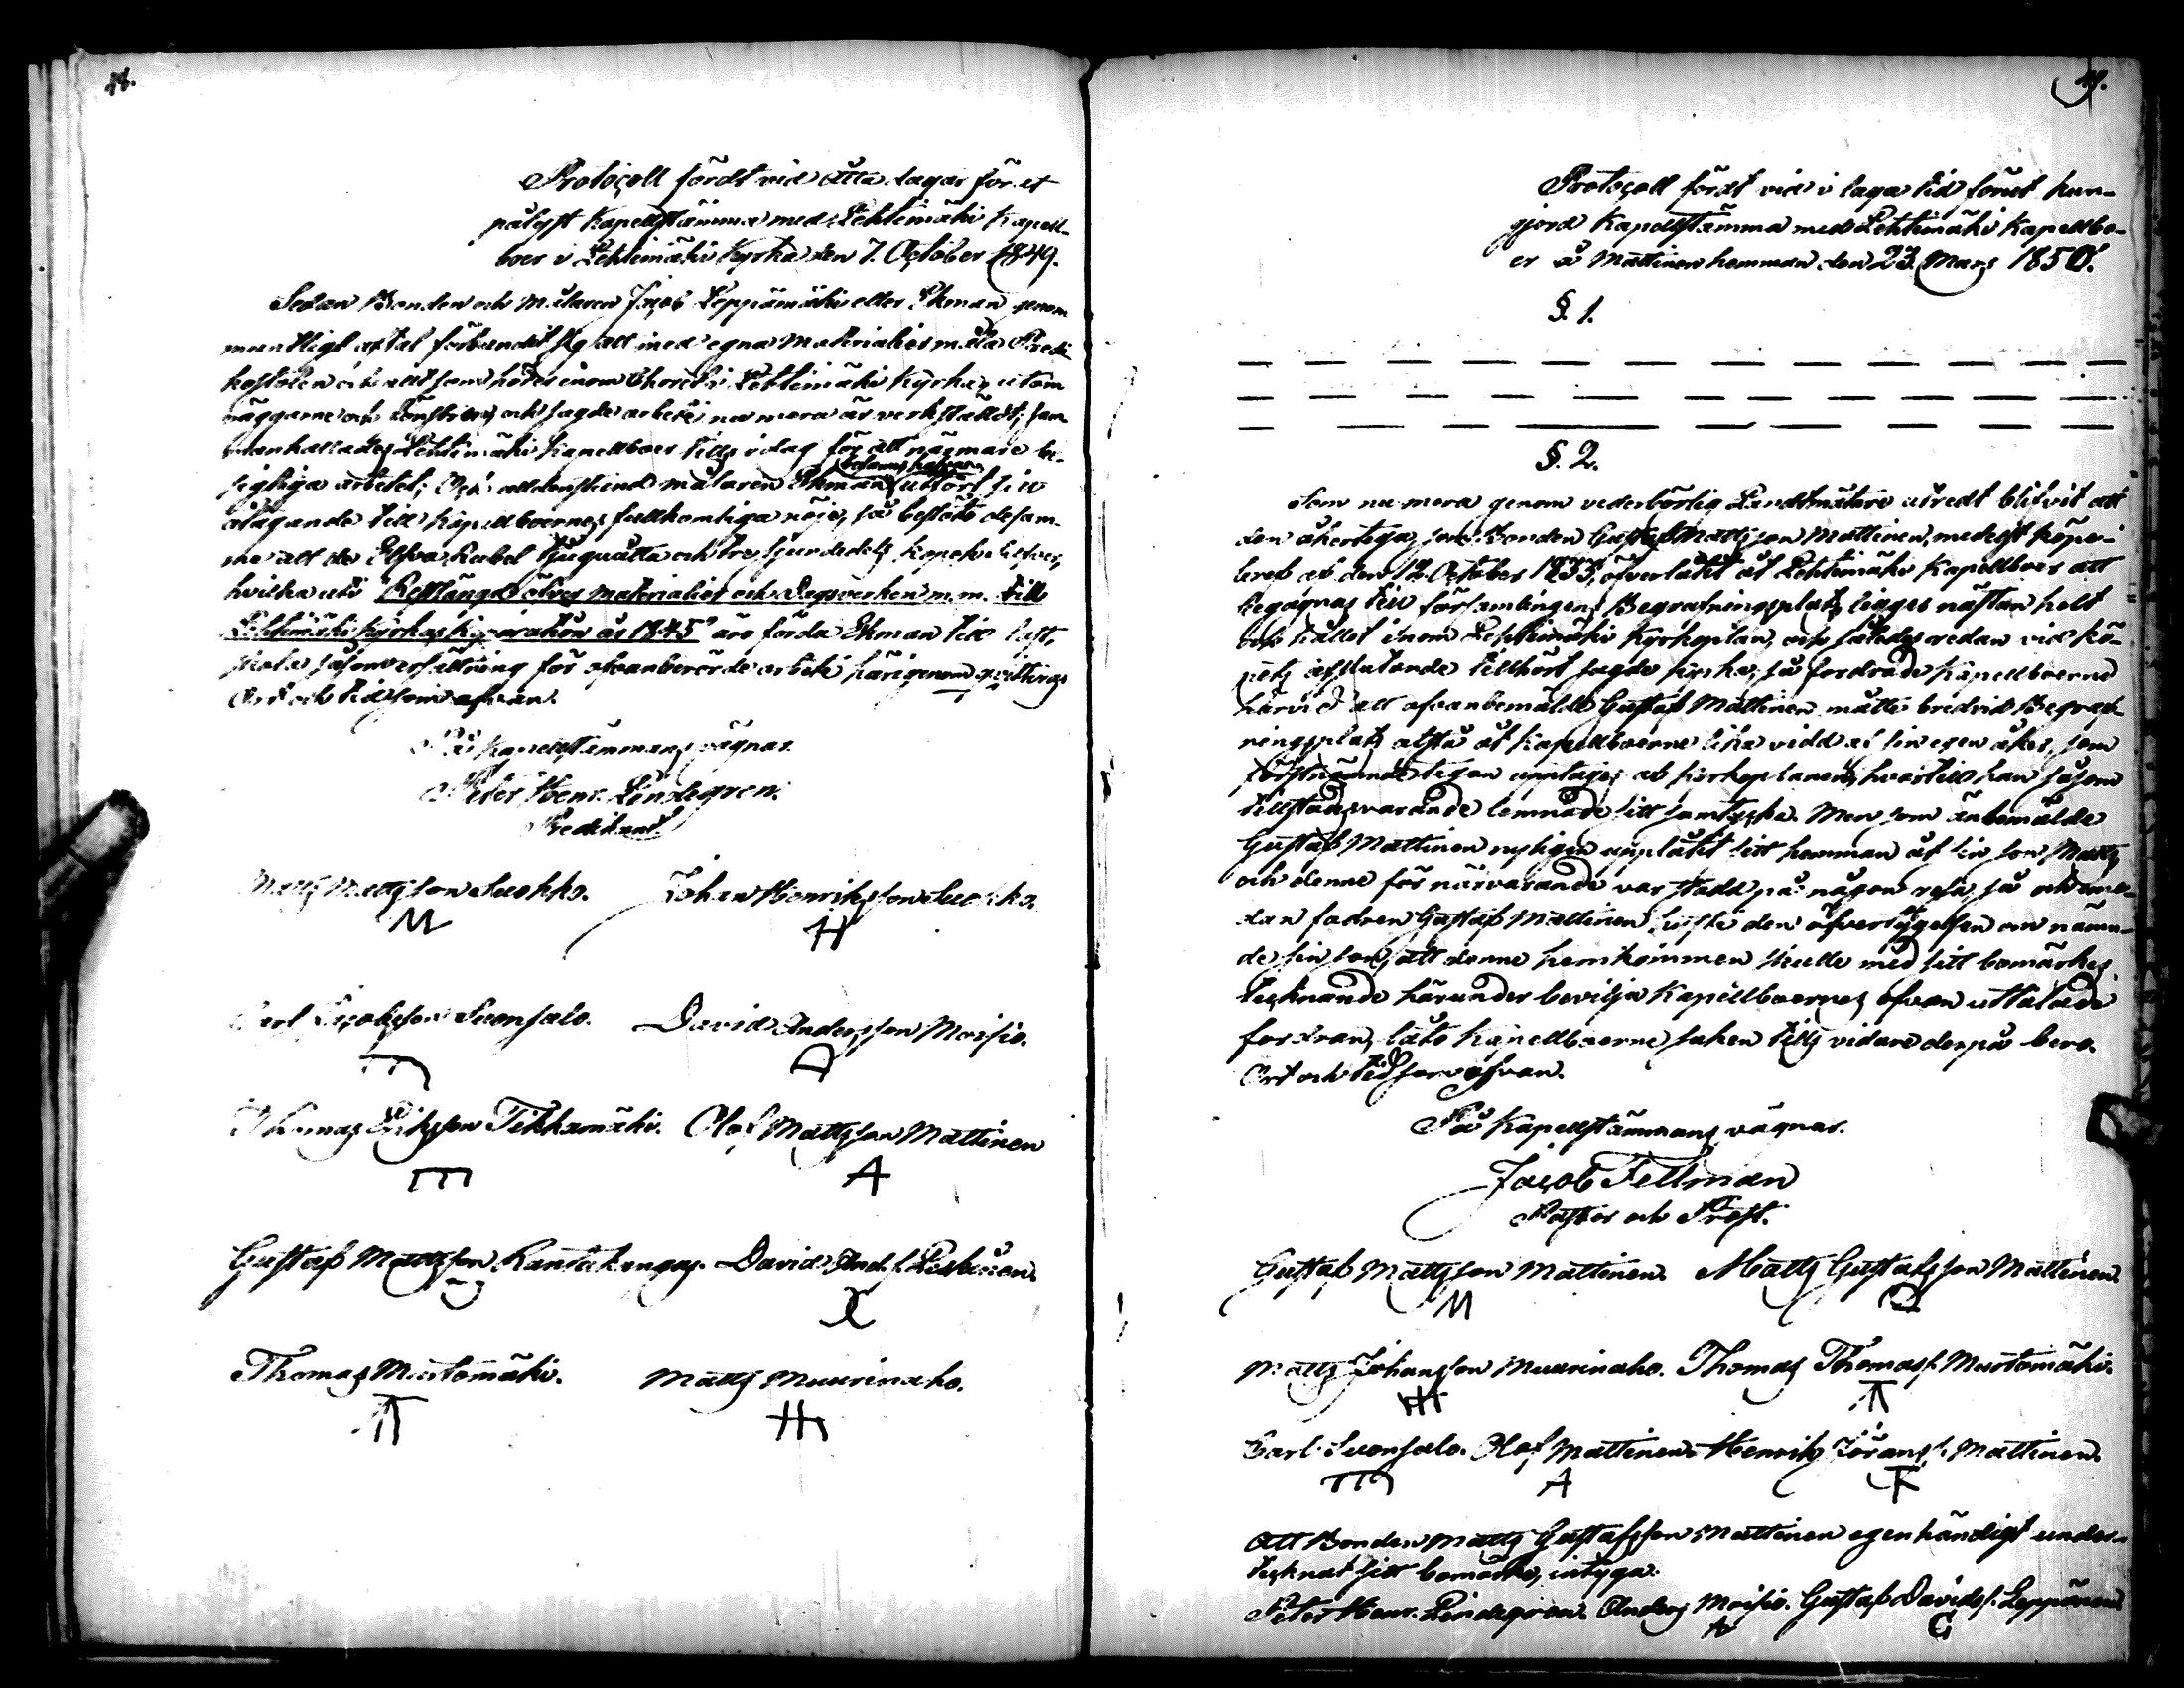 18.
Protocoll fördt vid åtta dagar förut
pålyst Kapellstämma med Lehtimäki Kapell-
boer i Lehtimäki Kyrka den 7. October 1849.
Sedan Bonden och Målaren Jacob Leppämäki eller Ekman genom
muntligt aftal förbundit sig att med egna Materialier måla Predi-
kostolen och allt som hörer inom Choret i Lehtimäki Kyrka, utom
väggarne och Fönstren, och sagde arbete nu mera är verkstäldt; sam-
mankallades Lehtimäki Kapellboer tills i dag för att närmare be-
sigtiga arbetet; Och alldenstund målaren Ekman befanns hafva utfört sitt
åtagande till Kapellboernes fullkomliga nöje, så beslöto desam-
me att de Elfva Rubel tjuguåtta och tre sjundedels kopek Silfver,
hvilka uti Restlängd öfver Materialier och Dagsverken m.m. till
Lehtimäki Kyrkas Reparation år 1845" äro förda Ekman till last,
skola såsom ersättning för ofvanberörde arbete härigenom qvittas
Ort och tid som ofvan.
På Kapellstämmans vägnar.
Peter Henr. Lindegren.
Predikant
Matts Mattsson Suokko. Johan Henriksson Suokko.
M H
Carl Jacobsson Suonsalo. David Andersson Moisio.
D
Thomas Eriksson Tikkamäki. Olof Mattsson Mattinen
A
Gustaf Mattsson Rantakangas. David And.s. Peskinen.
Thomas Mustomäki. Matts Muurinaho.
19.
Protocoll fördt vid i laga tid förut kun-
gjord Kapellstämma med Lehtimäki Kapellbo-
er å Mattinen hemman den 23 Mars 1850.
§. 1.
§. 2.
Som nu mera genom vederbörlig Landtmätare utredt blifvit att
den åkertega, som Bonden Gustaf Mattsson Mattinen, medelst köpe-
bref af den 12 October 1833, öfverlåtit åt Lehtimäki Kapellboer att
begagnas till församlingens Begrafningsplats ligger nästan helt
och hållet inom Lehtimäki Kyrkoplan, och således redan vid kö-
pets afslutande tillhört sagde kyrka; så fordrade Kapellboerne
härvid att ofvanbemälde Gustaf Mattinen måtte bredvid Begraf-
ningsplats afstå åt Kapellboerne lika vidd af sin egen åker, som
förstnämnde tegen upptager af kyrkoplanen, hvartill han såsom
tillstädesvarande lemnade sitt samtycke. Men som änbemälde
Gustaf Mattinen nyligen upplåtit sitt hemman åt sin son Matts
och denne för närvarande var stadd på någon resa, så och eme-
dan fadren Gustaf Mattinen hyste den öfvertygelsen om nämn-
de sin son, att denne hemkommen skulle med sitt bomärkes
tecknande härunder bevilja Kapellboernes ofvan uttalade
fordran, läto Kapellboerne saken tills vidare derpå bero.
Ort och tid som ofvan.
På Kapellstämmans vägnar.
Jacob Fellman
Pastor och Prost.
Gustaf Mattsson Mattinen. Matts Gustafsson Mattinen.
M
Matts Johansson Muurinaho. Thomas Thomass. Mustomäki.
Carl Suonsalo. Olof Mattinen. Henrik Jörans s. Mattinen.
A
Att Bonden Matts Gustafsson Mattinen egenhändigt under-
tecknat sitt bomärke, intyga.
Peter Henr. Lindegren. Anders Moisio. Gustaf Davidss. Leppänen
G